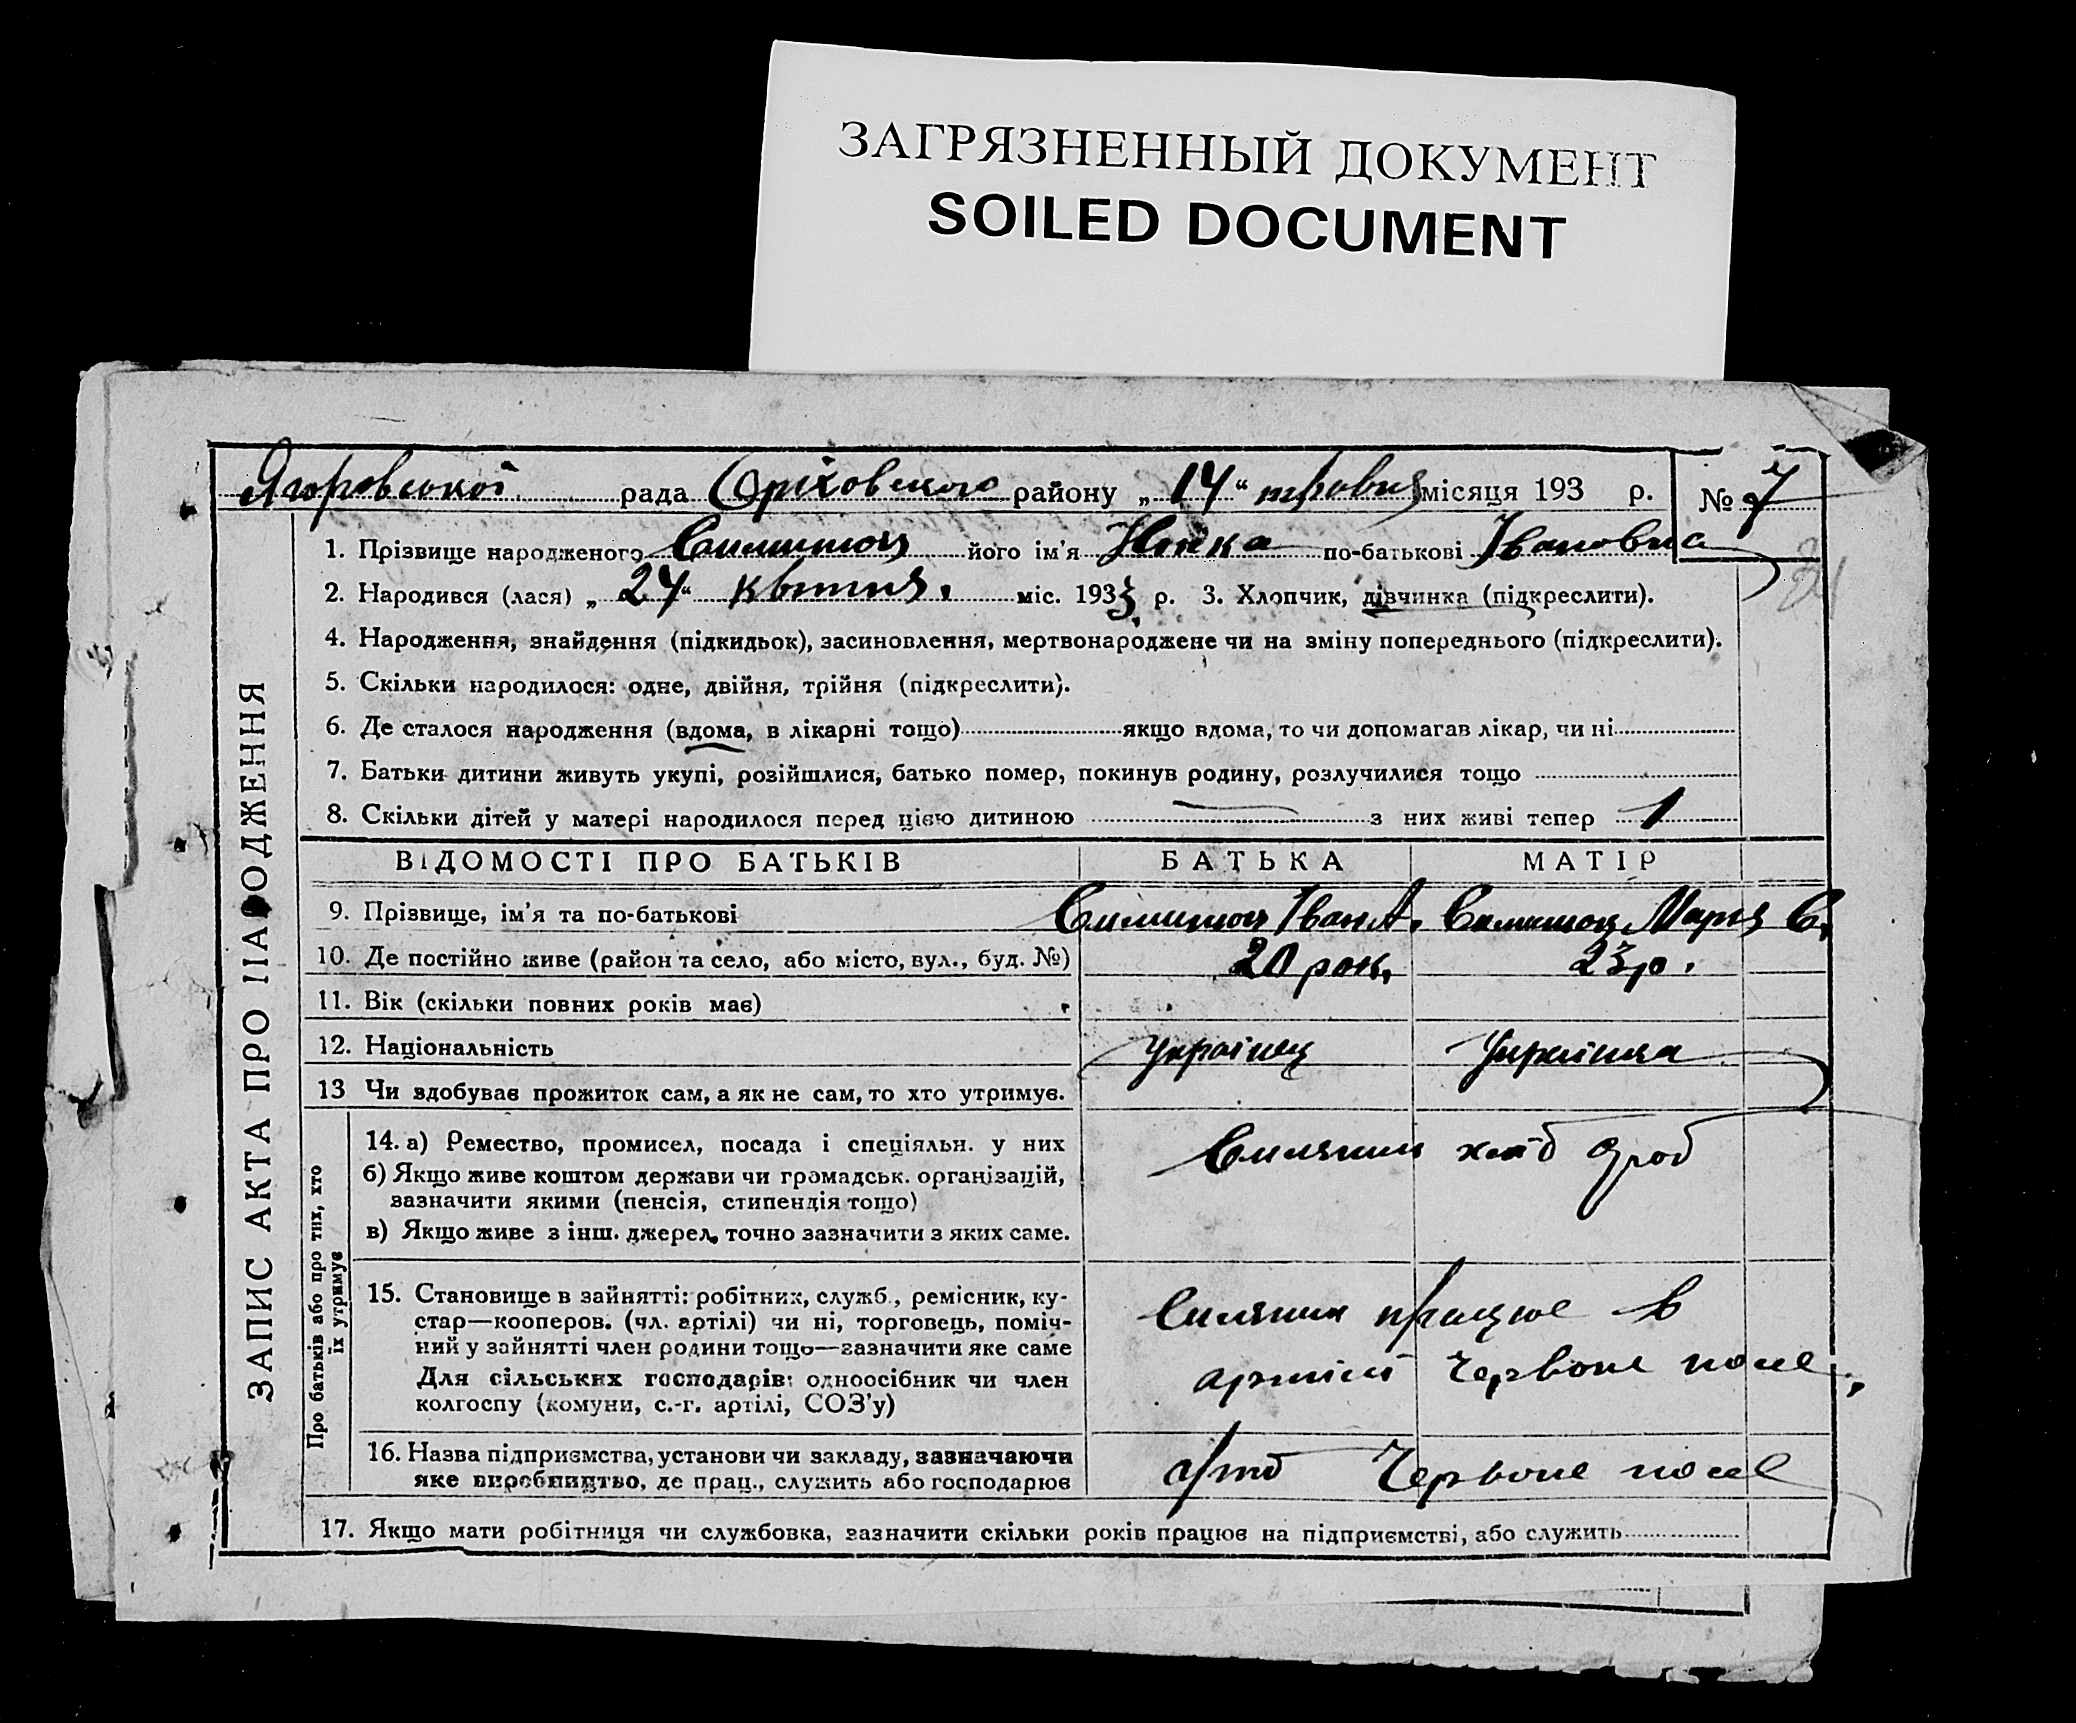 ЗАГРЯЗНЕННЫЙ ДОКУМЕНТ
SOILED DOCUMENT
рада Оріховского району „ 14 “ травня місяця 193 р. № 7
1. Прізвище народженого його ім'я Нінка по-батькові Івановна
2. Народився (лася) „ 24 “ квітня. міс. 1933 р. 3. Хлопчик, дівчинка (підкреслити).
4. Народження, знайдення (підкидьок), засиновлення, мертвонароджене чи на зміну попереднього (підкреслити).
5. Скільки народилося: одне, двійня, трійня (підкреслити).
6. Де сталося народження (вдома, в лікарні тощо) якщо вдома, то чи допомагав лікар, чи ні
7. Батьки дитини живуть укупі, розійшлися, батько помер, покинув родину, розлучилися тощо
8. Скільки дітей у матері народилося перед цією дитиною — з них живі тепер 1
ЗАПИС АКТА ПРО НАРОДЖЕННЯ
ВІДОМОСТІ ПРО БАТЬКІВ БАТЬКА МАТІР
9. Прізвище, ім'я та по-батькові Іван А. Марія С.
10. Де постійно живе (район та село, або місто, вул., буд. №) 20 рок. 23 р.
11. Вік (скільки повних років має)
12. Національність Українец Українка
13 Чи здобував прожиток сам, а як не сам, то хто утримує.
Про батьків або про тих, хто
їх утримує
14. а) Ремество, промисел, посада і спеціяльн. у них хліб
б) Якщо живе коштом держави чи громадськ. організацій,
зазначити якими (пенсія, стипендія тощо)
в) Якщо живе з інш. джерел, точно зазначити з яких саме.
15. Становище в зайнятті: робітник, служб., ремісник, ку-
стар—кооперов. (чл. артілі) чи ні, торговець, поміч-
ний у зайнятті член родини тощо—зазначити яке саме
Для сільських господарів: одноосібник чи член
колгоспу (комуни, с.-г. артілі, СОЗ'у)
Силянин працює в
артілі Червоне поле,
16. Назва підприємства, установи чи закладу, зазначаючи
яке виробництво, де прац., служить або господарює
Червоне поле
17. Якщо мати робітниця чи службовка, зазначити скільки років працює на підприємстві, або служить